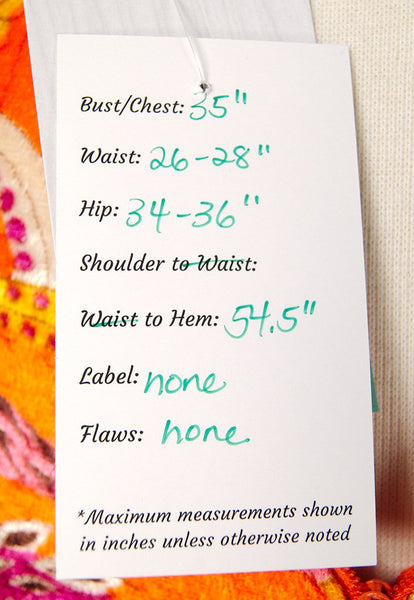 Bust/Chest: 35"
Waist: 26-28"
Hip: 34-36"
Shoulder to Waist:
Waist to Hem: 54.5"
Label: none
Flaws: none
*Maximum measurements shown
in inches unless otherwise noted